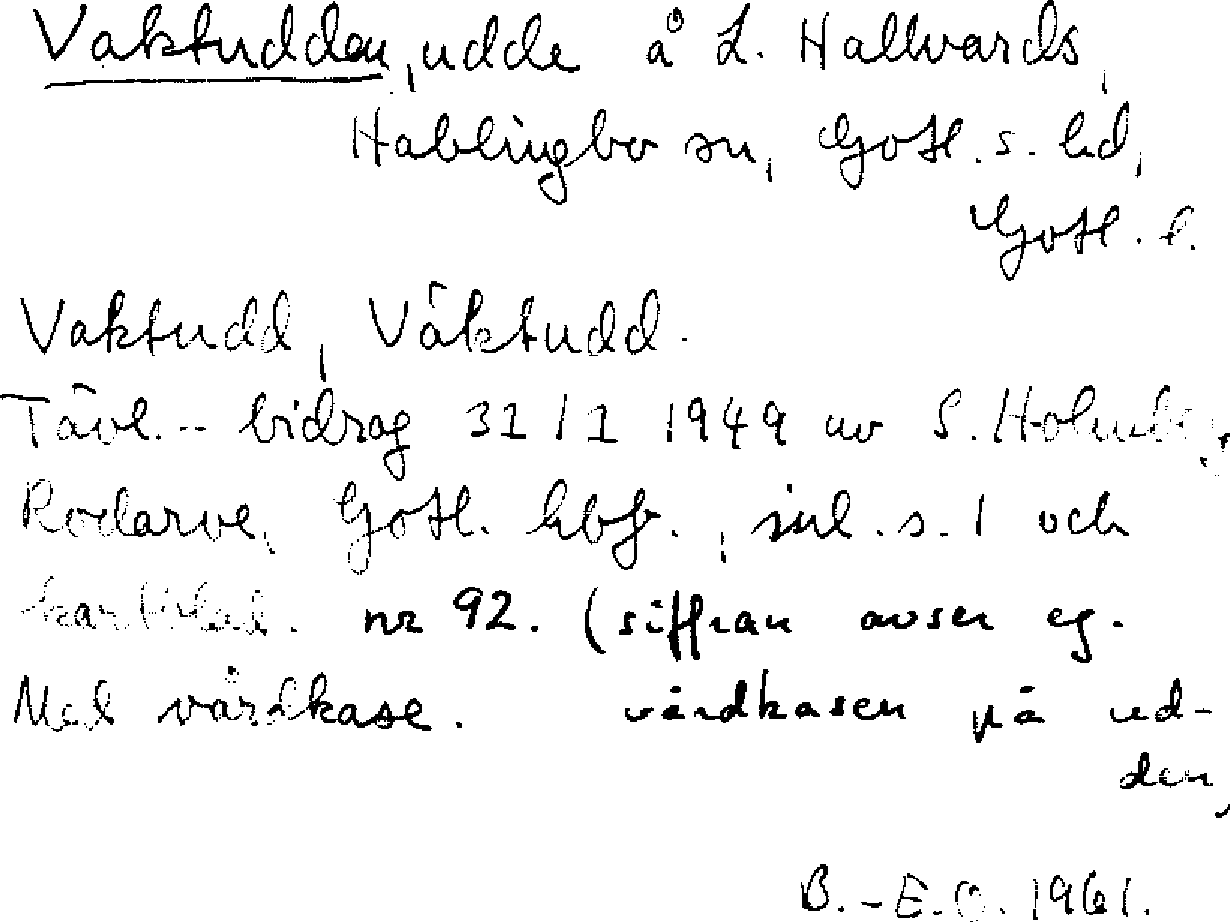 Vaktudden, udde å L. Hallvards,
Hablingbo sn, Gotl. s. hd,
Gotl. l.
Vaktudd, Väktudd.
Tävl.-bidrag 31/1 1949 av S. Holmberg,
Rodarve, Gotl. hbf., inl. s. 1 och
kartblad. nr 92. (siffran avser eg.
Med vårdkase. vårdkasen på ud-
den,
B.-E.O. 1961.